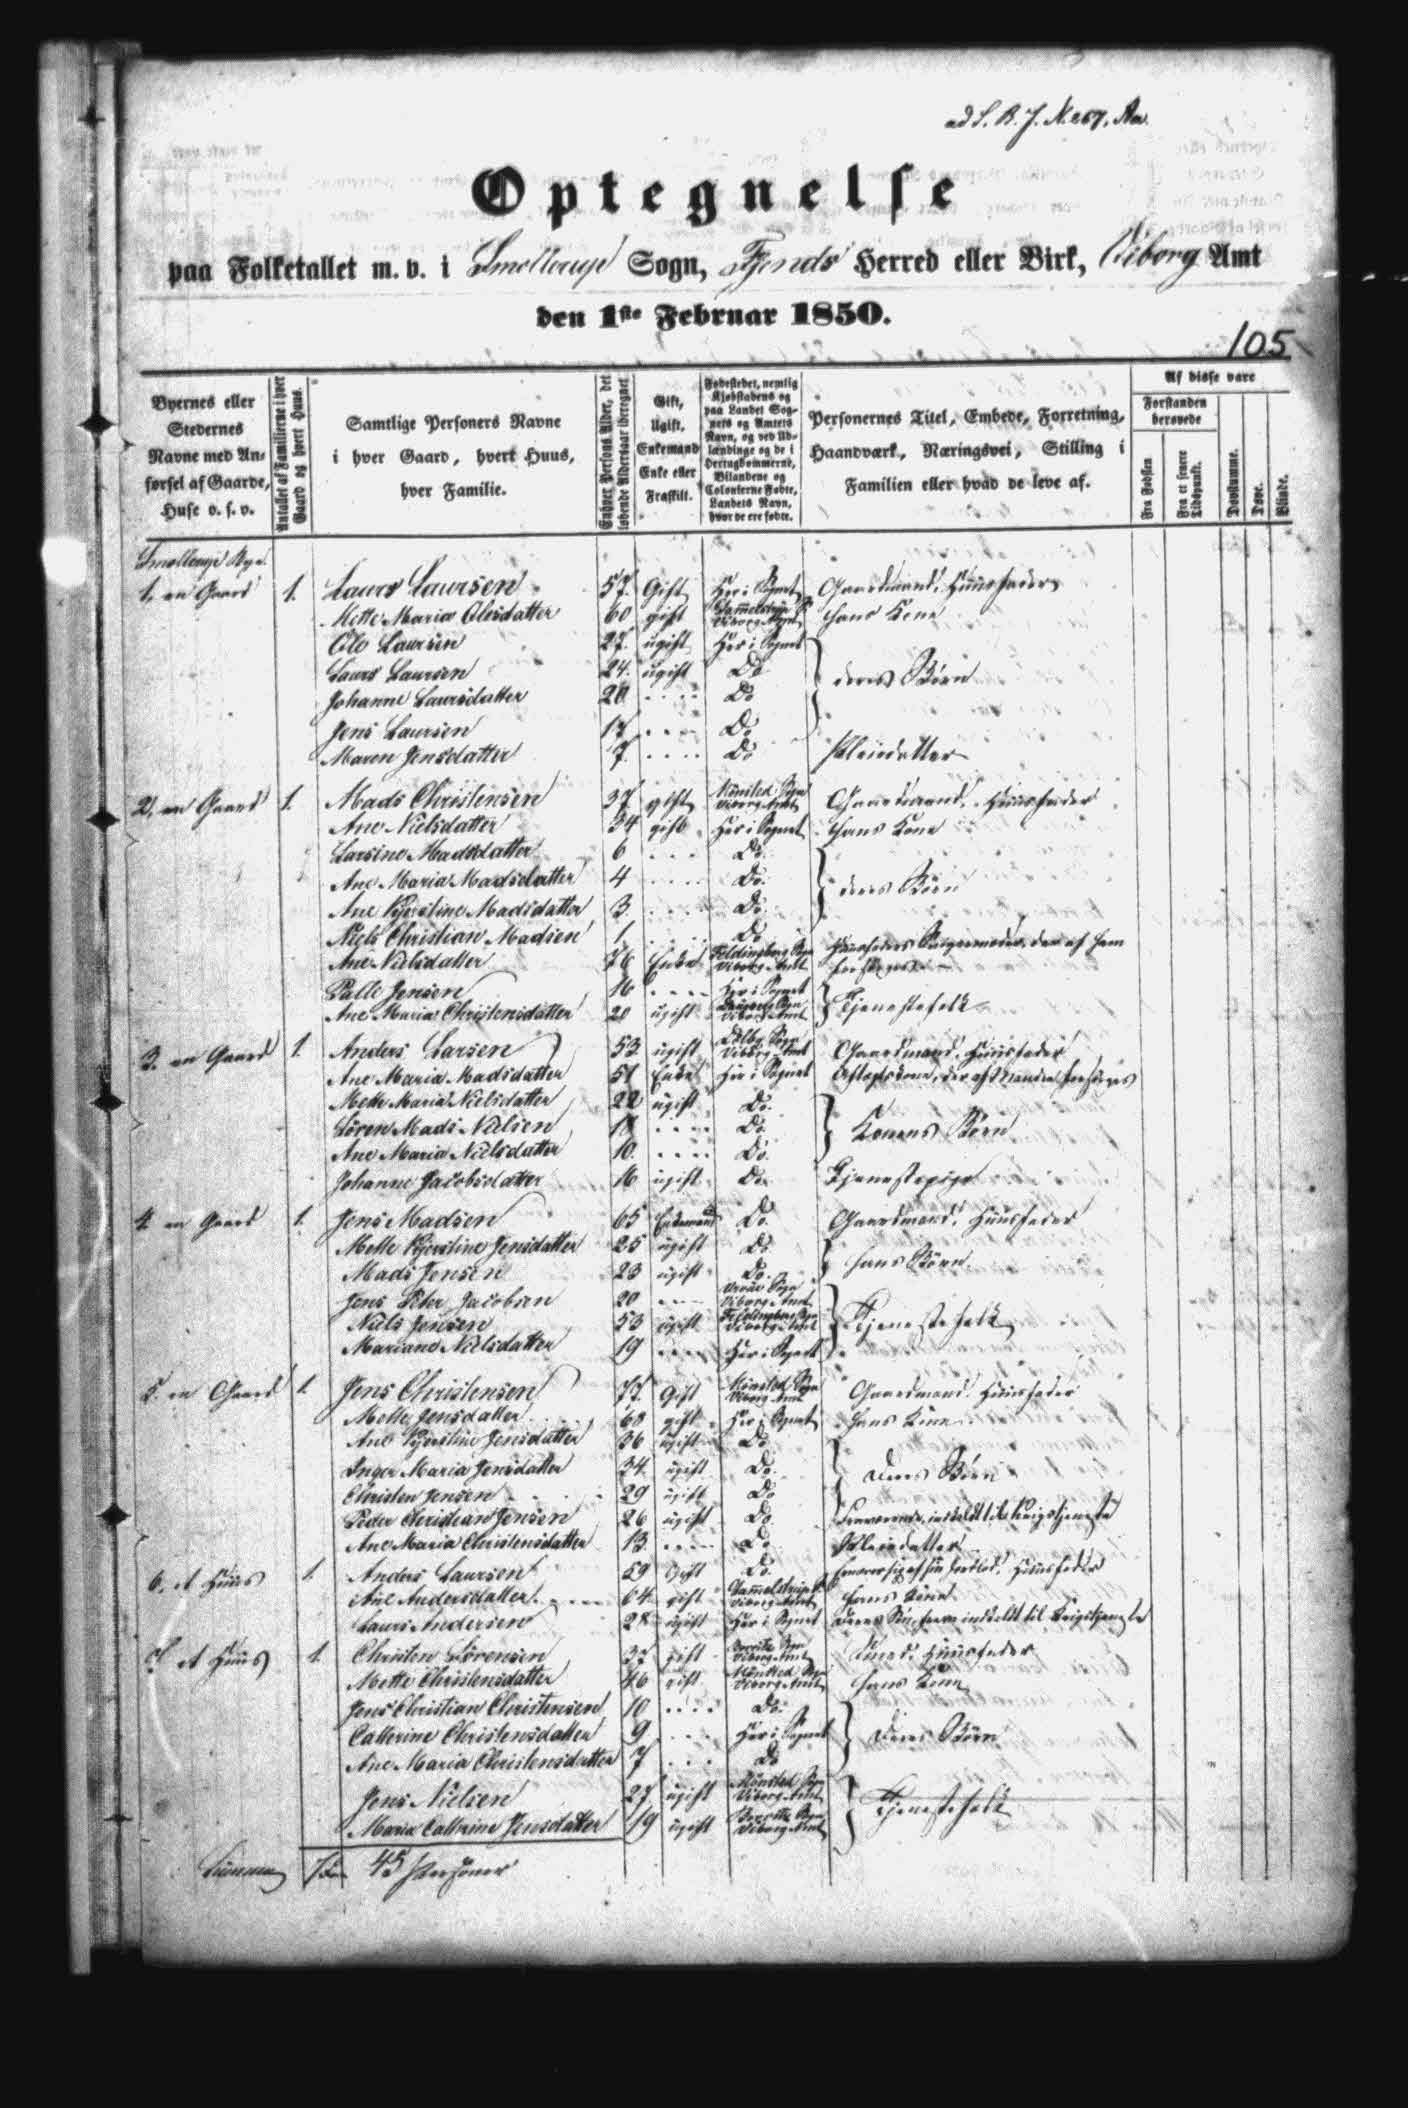 ad S. R. J. N. 267. Aa.
Optegnelse
paa Folketallet m. v. i Smollerup Sogn, Fjends Herred eller Birk, Viborg Amt
den 1ste Februar 1850.
105
Byernes eller Stedernes Navne med Anførsel af Gaarde, Huse o. s. v.
Antallet af Familierne i hver Gaard og hvert Huus.
Samtlige Personers Navne i hver Gaard, hvert Huus, hver Familie.
Enhver Persons Alder, det løbende Aldersaar iberegnet.
Gift, Ugift, Enkemand, Enke eller Fraskilt.
Fødestedet, nemlig Kjøbstadens og paa Landet Sognets og Amtets Navn, og ved Udlændinge og de i Hertugdømmerne, Bilandene og Colonierne Fødte, Landets Navn, hvor de ere fødte.
Personernes Titel, Embede, Forretning, Haandværk, Næringsvei, Stilling i Familien eller hvad de leve af.
Af disse vare
Forstanden berøvede
Fra Fødslen
Fra et senere Tidspunkt.
Døvstumme.
Døve.
Blinde.
Smollerup Bye
1, en Gaard 1. Laurs Laursen 57. Gift Her i Sognet Gaardmand, Huusfader
Mette Maria Olesdatter 60 gift Viborg Amt hans Kone
Ole Laursen 27. ugift Her i Sognet
Laurs Laursen 24. ugift Do deres Børn
Johanne Laursdatter 20 .... Do
Jens Laursen 17 .... Do
Maren Jensdatter 7. .... Do Pleiedatter
2, en Gaard 1. Mads Christensen 37 gift Mønsted Sogn Viborg Amt Gaardmand, Huusfader
Ane Nielsdatter 34 gift Her i Sognet hans Kone
Larsine Madsdatter 6 .... Do.
Ane Maria Madsdatter 4 .... Do. deres Børn
Ane Kjerstine Madsdatter 3. .... Do.
Niels Christian Madsen 1 .... Do
Ane Nielsdatter 76 Enke Feldingberg Sogn Viborg Amt Huusfaders Svigermoder, der af ham forsørges
Palle Jensen 16 .... Her i Sognet Tjenestefolk
Ane Maria Christensdatter 20 ugift Viborg Amt
3. en Gaard 1. Anders Larsen 53 ugift Viborg Amt Gaardmand, Huusfader
Ane Maria Madsdatter 51 Enke Her i Sognet Aftægtskone, der af Manden forsørges
Mette Maria Nielsdatter 22 ugift Do.
Søren Mads Nielsen 18 .... Do. Konens Børn
Ane Maria Nielsdatter 10. .... Do.
Johanne Jacobsdatter 16 ugift Do. Tjenestepige
4. en Gaard 1. Jens Madsen 65 Enkemand Do. Gaardmand, Huusfader
Mette Kjerstine Jensdatter 25 ugift Do. hans Børn
Mads Jensen 23 ugift Do.
Jens Peter Jacobsen 20 .... Sogn Viborg Amt
Niels Jensen 53 ugift Feldingberg Sogn Viborg Amt Tjenestefolk
Mariane Nielsdatter 19 .... Her i Sognet
5. en Gaard 1. Jens Christensen 77. Gift Mønsted Sogn Viborg Amt Gaardmand, Huusfader
Mette Jensdatter 68 gift Her i Sognet hans Kone
Ane Kjerstine Jensdatter 36 ugift Do
Inger Maria Jensdatter 34 ugift Do. Deres Børn
Christen Jensen 29 ugift Do
Peder Christian Jensen 26 ugift Do. Fraværende, indkaldt til Krigstjeneste
Ane Maria Christensdatter 13. .... Do Pleiedatter
6. et Huus 1. Anders Laursen 59 Gift Do. Huusfader
Ane Andersdatter 64 gift Viborg Amt hans Kone
Laurs Andersen 28 ugift Her i Sognet Deres Søn, indkaldt til Krigstjeneste
7. et Huus 1. Christen Sørensen 37 gift Viborg Amt Smed, Huusfader
Mette Christensdatter 46 gift Mønsted Sogn Viborg Amt hans Kone
Jens Christian Christensen 10 .... Do.
Cathrine Christensdatter 9 .... Her i Sognet Deres Børn
Ane Maria Christensdatter 7 .... Do
Jens Nielsen 27. ugift Mønsted Sogn Viborg Amt Tjenestefolk
Maria Cathrine Jensdatter 19 ugift Viborg Amt
Summa 7 Fam 45 Personer